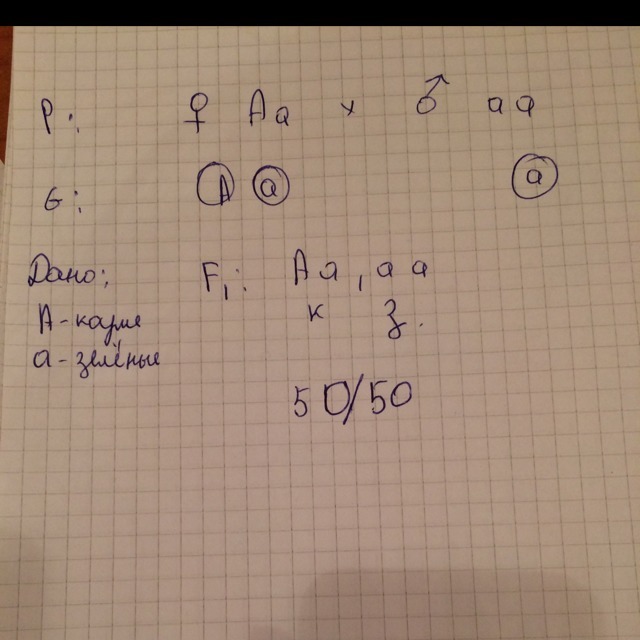 P: ♀ Aa x ♂ aa
G: A a a
Дано: F₁: Aa, aa
A - карие к з.
a - зелёные
50/50